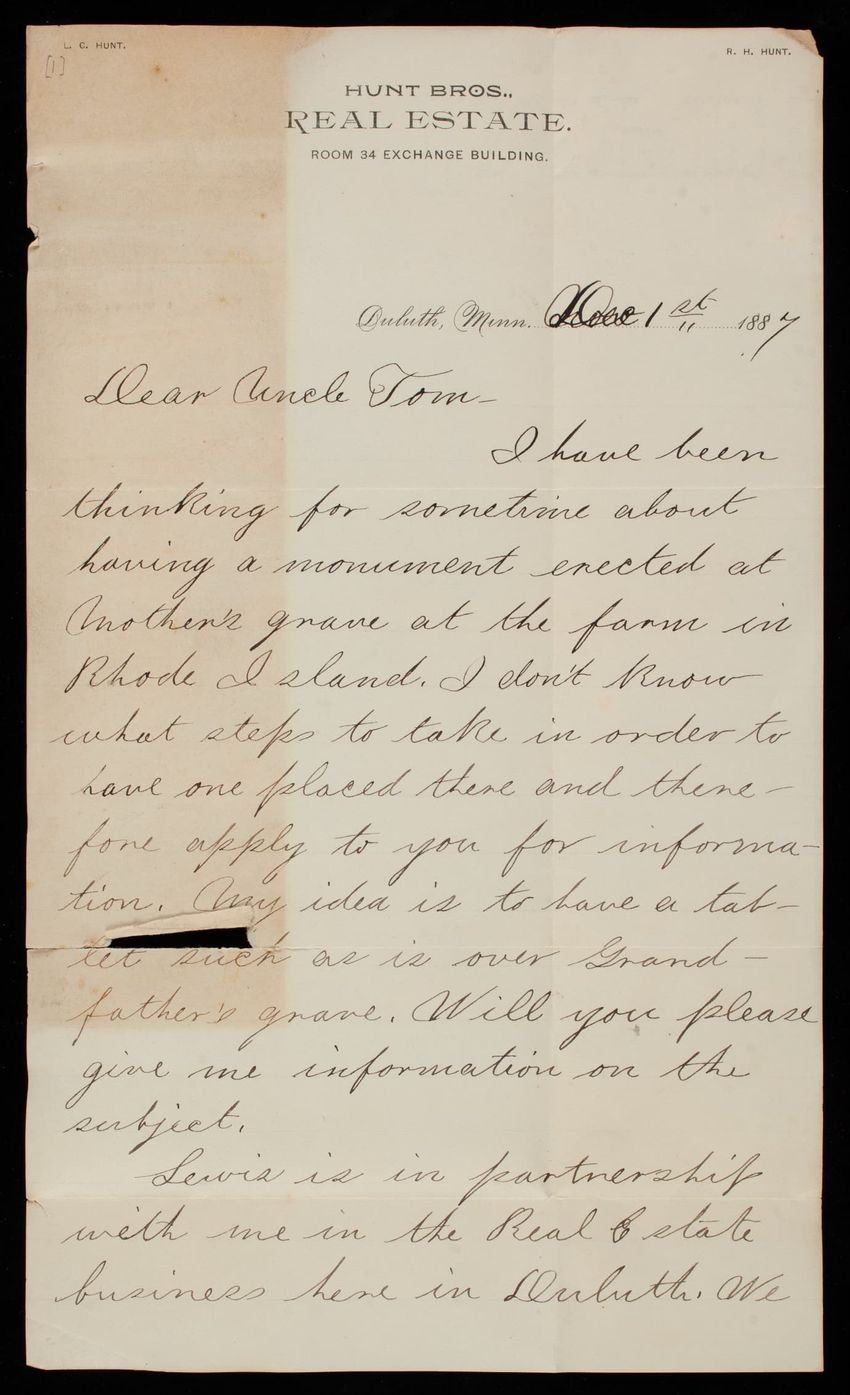 L. C. HUNT.
R. H. HUNT.
[1]
HUNT BROS.,
REAL ESTATE.
ROOM 34 EXCHANGE BUILDING.
Duluth, Minn. Dec 1st 1887
Dear Uncle Tom—
I have been
thinking for sometime about
having a monument erected at
Mother's grave at the farm in
Rhode Island. I don't know
what steps to take in order to
have one placed there and there-
fore apply to you for informa-
tion. My idea is to have a tab-
let such as is over Grand-
father's grave. Will you please
give me information on the
subject.
Lewis is in partnership
with me in the Real Estate
business here in Duluth. We